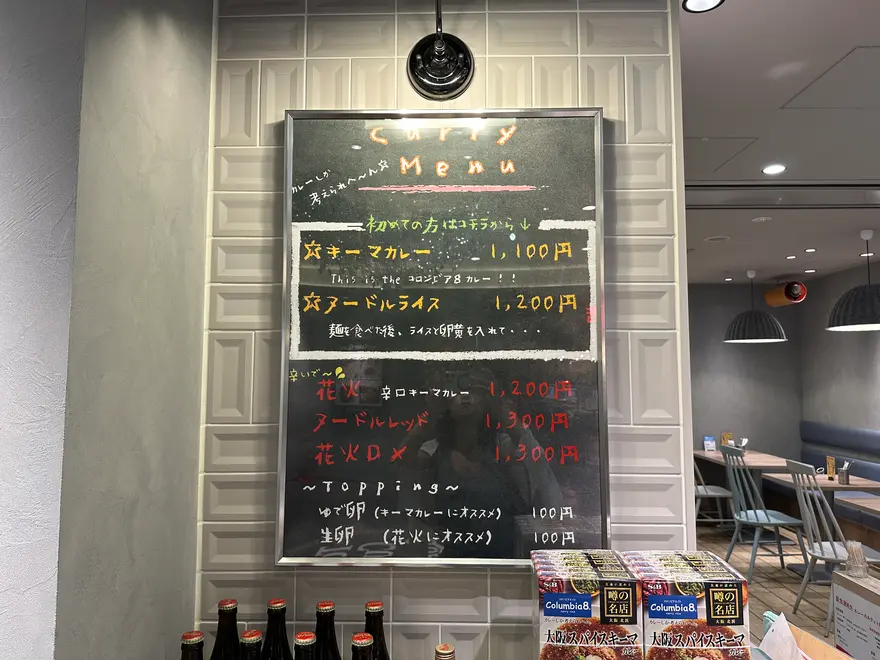 Curry
Menu
カレーしか
考えられへ〜ん☆
初めての方はコチラから↓
☆キーマカレー 1,100円
This is the コロンビア8カレー!!
☆ヌードルライス 1,200円
麺を食べた後、ライスと卵黄を入れて・・・
辛いで〜
花火 辛口キーマカレー 1,200円
ヌードルレッド 1,300円
花火DX 1,300円
~Topping~
ゆで卵 (キーマカレーにオススメ) 100円
生卵 (花火にオススメ) 100円
S&B
Columbia8
噂の名店
大阪 北浜
大阪スパイスキーマ
カレー
S&B
Columbia8
噂の名店
大阪 北浜
大阪スパイスキーマ
カレー